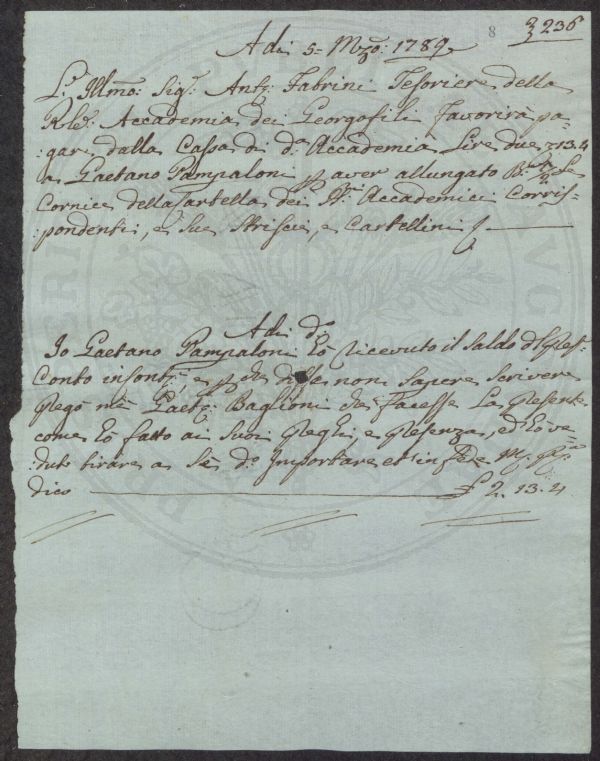 8 236
Adi 5 Mzo: 1789
L'Illmo: Sigr. Anto: Fabrini Tesoriere della
Rle: Accademia dei Georgofili Favorirà pa-
:gare dalla Cassa di da. Accademia Lire due 13.4
a Gaetano Pampaloni p aver allungato Le
Cornice della Cartella dei SSri. Accademici Corris-
:pondenti, e Sue Striscie, e Cartellini
Adi do.
Io Gaetano Pampaloni hò ricevuto il Saldo
Conto in conti, e p che disse non Sapere Scrivere
pregò me Gaeto: Baglioni che facesse La presente
come hò fatto ai Suoi preghi, e presenza, ed hò ve-
duto tirare a Sè do. Importare et in fede M. ppa.
dico £ 2. 13. 4